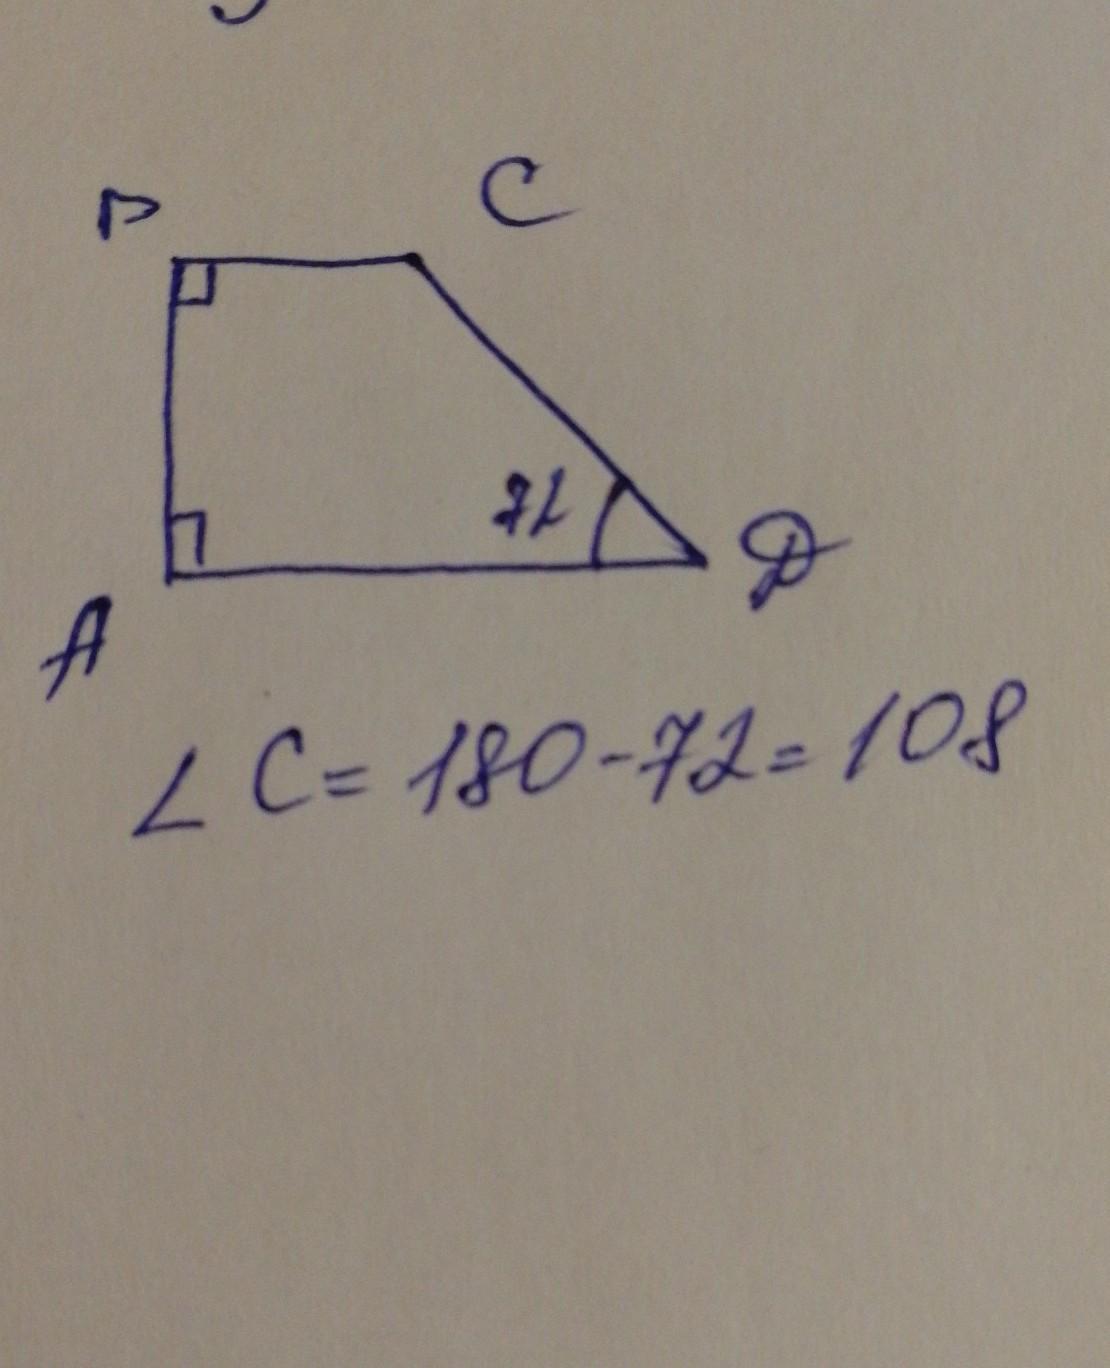 C
72
D
A
∠ C = 180 - 72 = 108